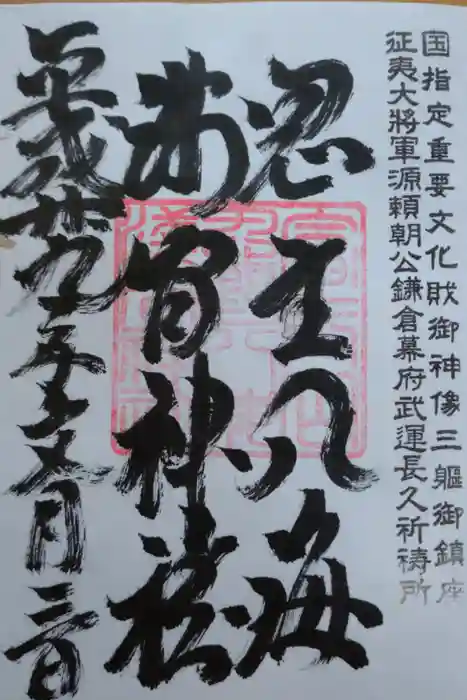 国指定重要文化財御神像三軀御鎮座
征夷大將軍源頼朝公鎌倉幕府武運長久祈祷所
八海
宮神社
平成廿九年文月三日